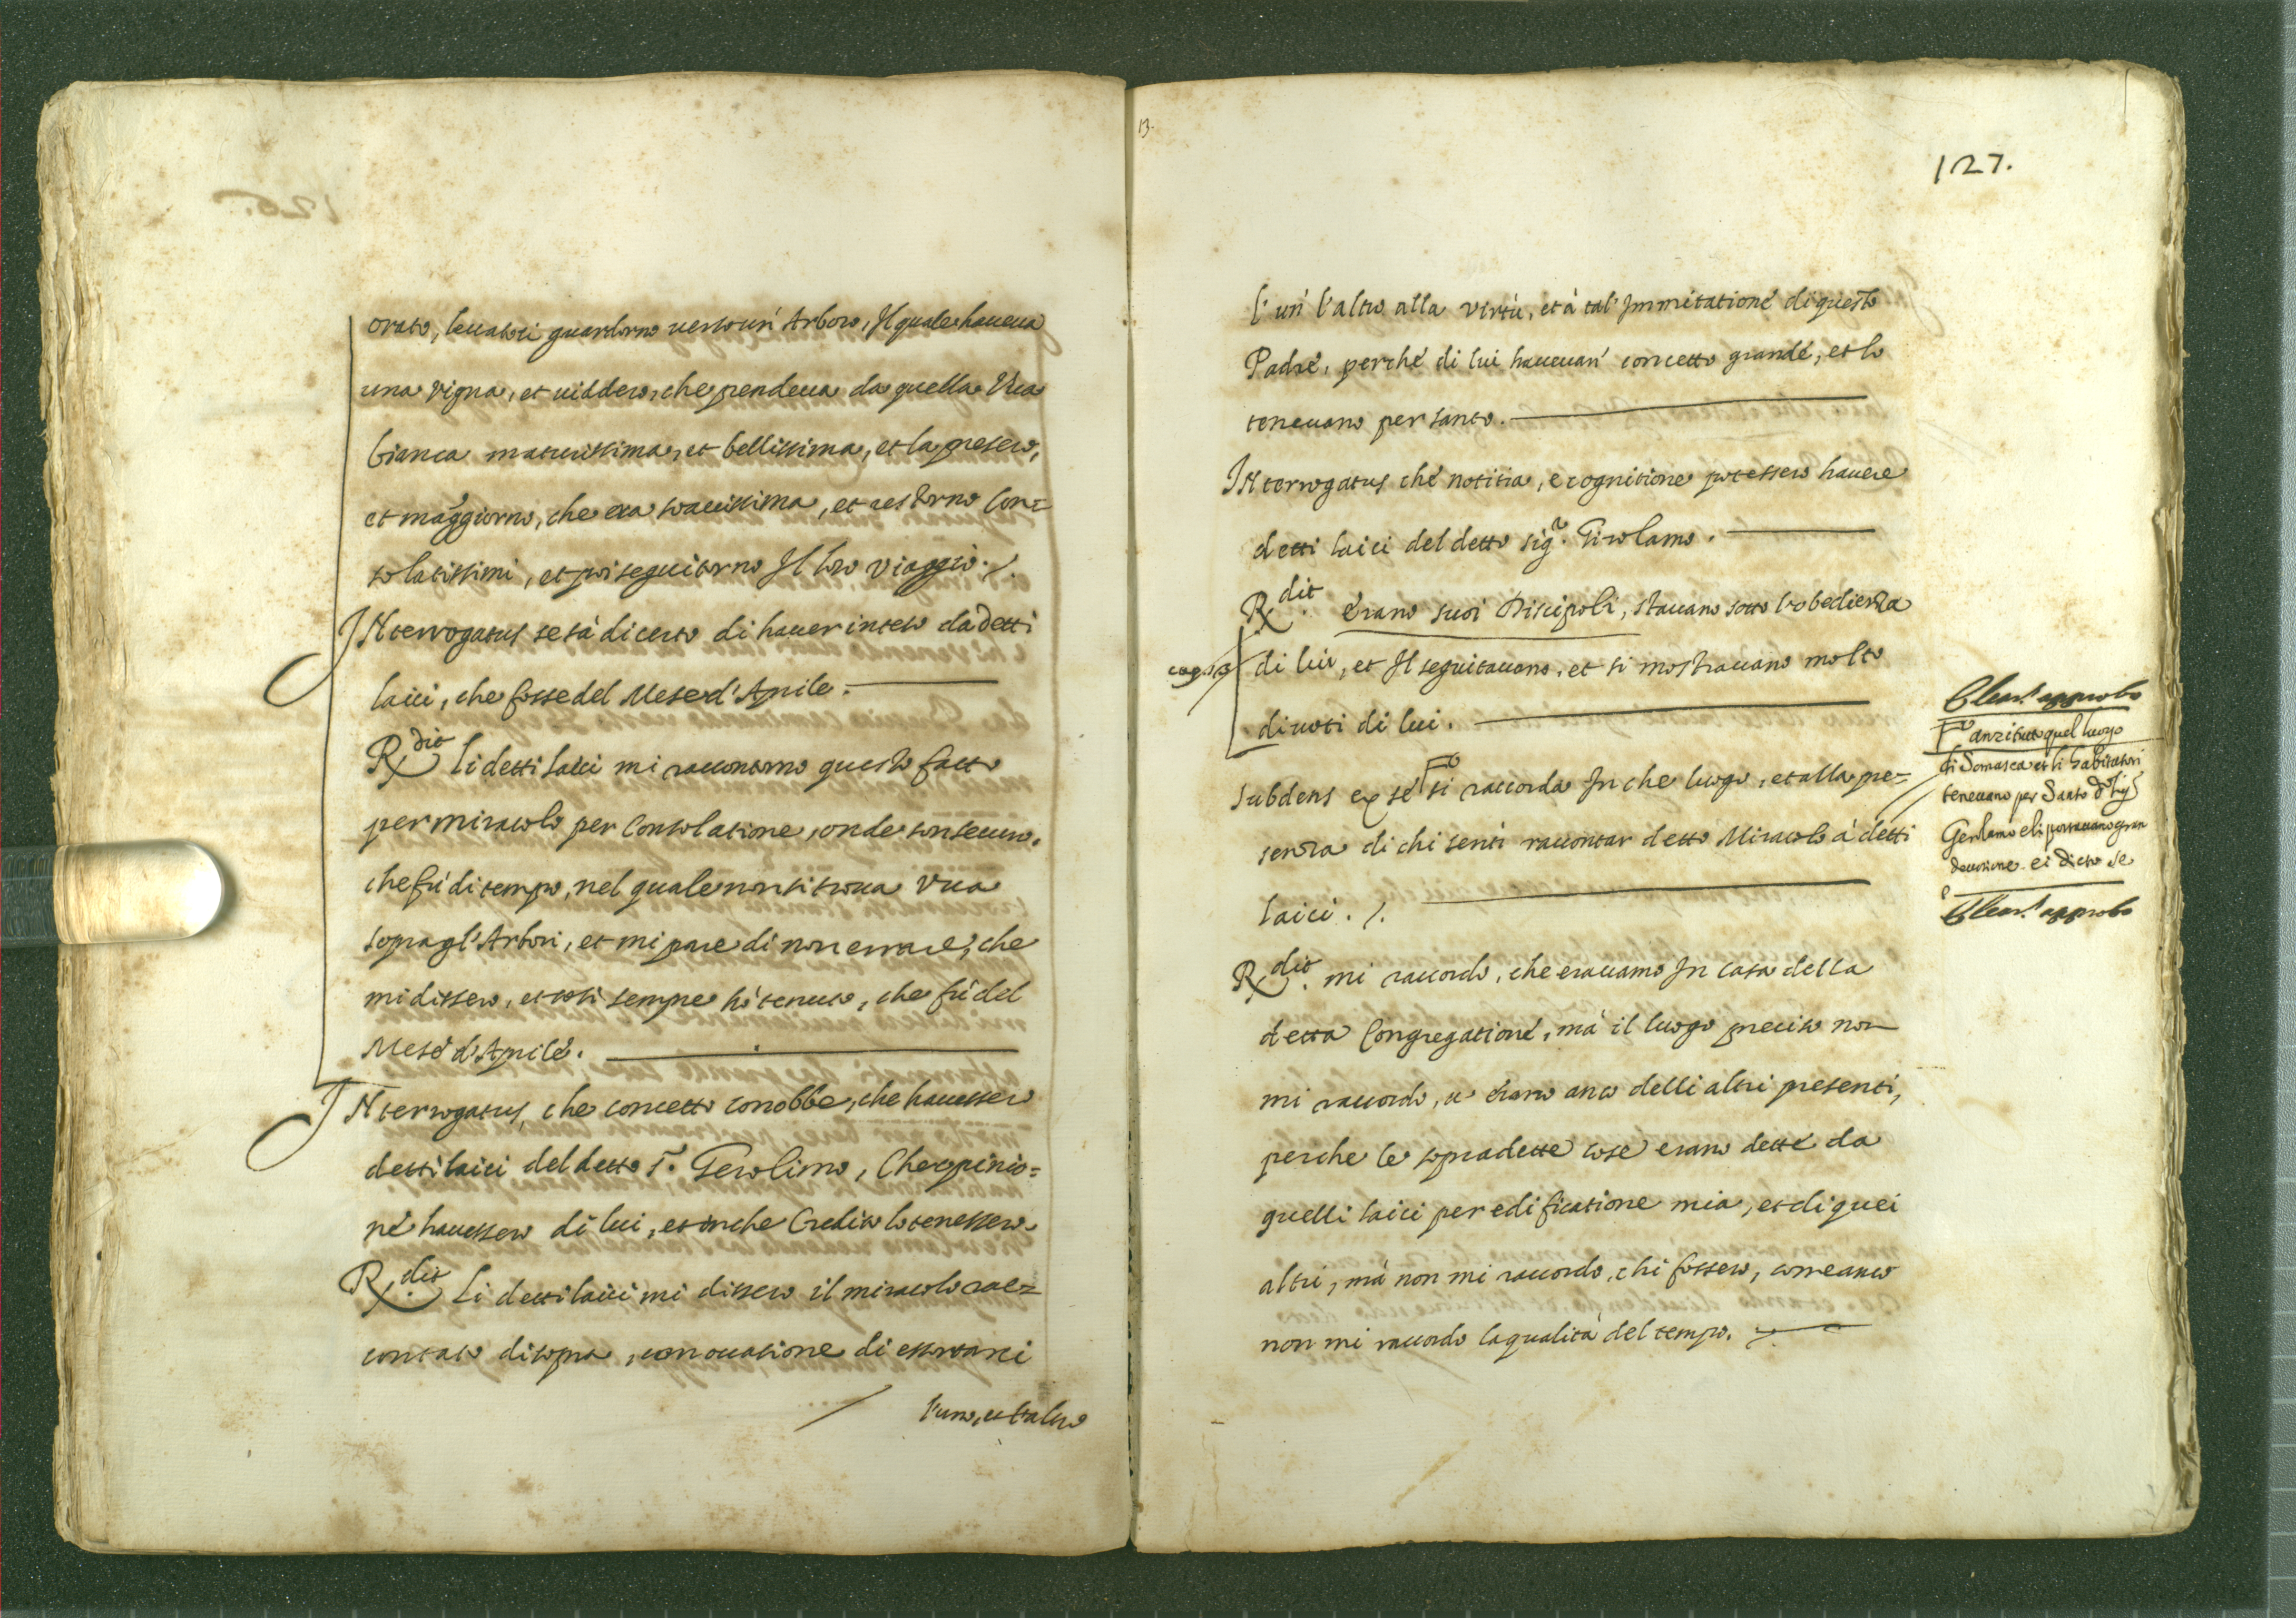 orato, leuatosi guardorno uerso un' Arboro, Il quale haueua
una vigna, et uiddero, che pendeua da quella Vua
bianca maturissima, et bellissima, et la presero,
et mãggiorno, che era soauissima, et restorno con=
solatissimi, et poi seguitorno Il loro viaggio ./.
INterrogatus se sà di certo di hauer inteso da detti
laici, che fosse del Mese d'Aprile.
Rx dit li detti laici mi raccontorno questo fatto
per miracolo per consolatione, onde son securo,
che fù di tempo, nel quale non si troua Vua
sopra gl'Arbori, et mi pare di non errare, che
mi dissero, et così sempre hò tenuto, che fù del
Mese d'Aprile.
INterrogatus, che concetto conobbe, che hauessero
detti laici del detto S.r Gerolimo, Che opinio=
ne hauessero di lui, et in che credito lo tenessero.
Rx dit. Li detti laici mi dissero il miracolo rac=
contato di sopra, con occasione di essortarsi
l'uno, et l'altro
13.
127.
l'un' l'altro alla virtù, et à tal' Immitatione di questo
Padre, perche di lui haueuan' concetto grande, et lo
teneuano per santo.
INterrogatus che notitia, e cognitione potessero hauere
detti laici del detto sig.r Girolamo.
Rx dit. erano suoi Discipoli, stauano sotto l'obedienza
di lui, et Il seguitauano, et si mostrauano molto
diuoti di lui.
Subdens ex se si raccorda In che luogo, et alla pre=
senza di chi sentì raccontar detto Miracolo à detti
laici ./.
Rx dit. mi raccordo, che erauamo In casa della
detta Congregatione, mà il luogo preciso non
mi raccordo, u' erano anco delli altri presenti,
perche le sopradette cose erano dette da
quelli laici per edificatione mia, et di quei
altri, mà non mi raccordo, chi fossero, come anco
non mi raccordo la qualità del tempo. ./.
approbo
anzi tutto quel luogo
di Somasca et li habitatori
teneuano per Santo d.o Sig.r
Gerolamo e li portauano gran
deuotione. et dicto se
approbo